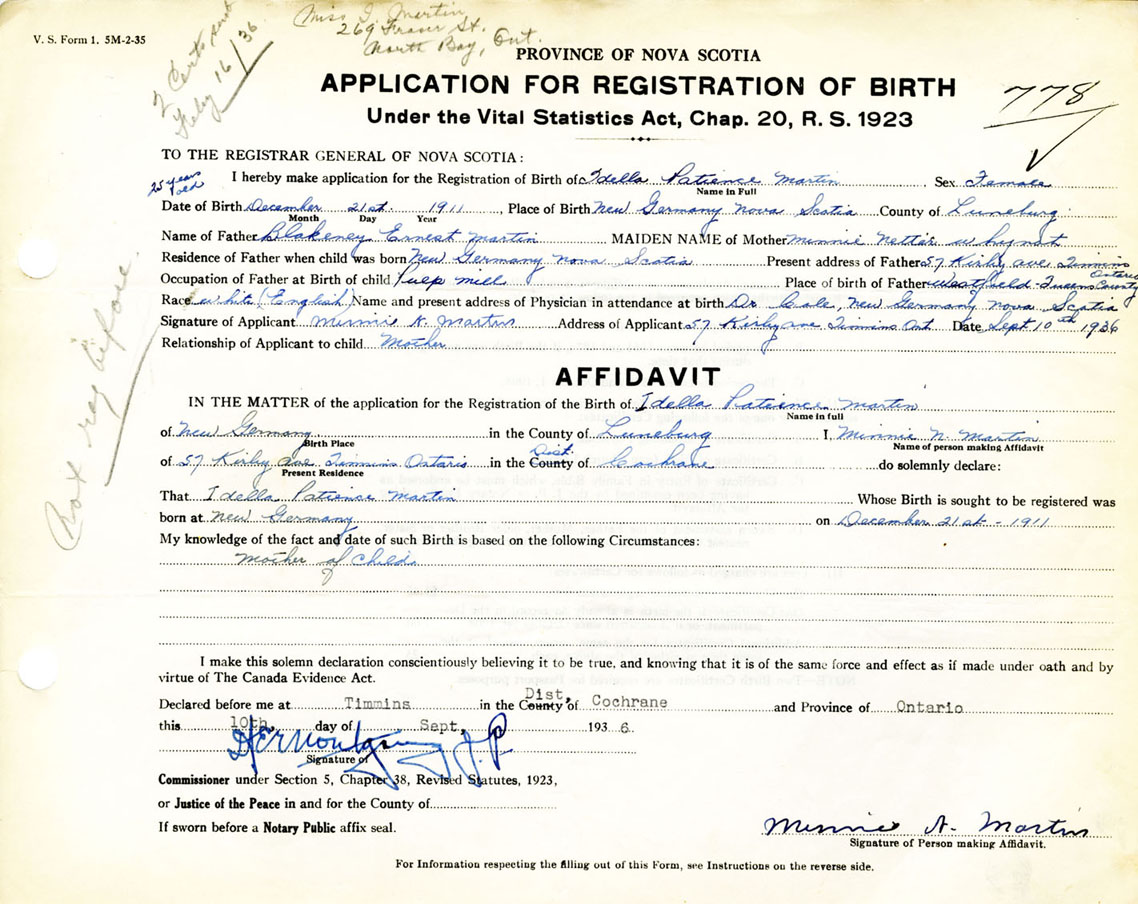 V. S. Form 1. 5M-2-35
Miss I. Martin
269 Fraser St.
North Bay, Ont.
2 Certs sent
16/36
PROVINCE OF NOVA SCOTIA
APPLICATION FOR REGISTRATION OF BIRTH
Under the Vital Statistics Act, Chap. 20, R. S. 1923
778
TO THE REGISTRAR GENERAL OF NOVA SCOTIA:
25 years old
I hereby make application for the Registration of Birth of Idella Patience Martin Sex Female
Name in Full
Date of Birth December 21st. 1911, Place of Birth New Germany Nova Scotia County of Luneburg
Month Day Year
Name of Father Blakeney Ernest Martin MAIDEN NAME of Mother Minnie Nettie
Residence of Father when child was born New Germany Nova Scotia Present address of Father 57 Kirby ave Timmins Ontario
Occupation of Father at Birth of child Pulp mill Place of birth of Father Westfield Queens County
Race white (English) Name and present address of Physician in attendance at birth Dr. Cole, New Germany Nova Scotia
Signature of Applicant Minnie N. Martin Address of Applicant 57 Kirby ave Timmins Ont. Date Sept 10th 1936
Relationship of Applicant to child Mother
AFFIDAVIT
IN THE MATTER of the application for the Registration of the Birth of Idella Patience Martin
Name in full
of New Germany in the County of Luneburg I, Minnie N. Martin
Birth Place Name of person making Affidavit
Dist.
of 57 Kirby ave Timmins Ontario in the County of Cochrane do solemnly declare:
Present Residence
That Idella Patience Martin Whose Birth is sought to be registered was
born at New Germany on December 21st - 1911
My knowledge of the fact and date of such Birth is based on the following Circumstances:
Mother of Child.
I make this solemn declaration conscientiously believing it to be true, and knowing that it is of the same force and effect as if made under oath and by
virtue of The Canada Evidence Act.
Dist.
Declared before me at Timmins in the County of Cochrane and Province of Ontario
this 10th. day of Sept. 1936.
J.P
Signature of
Commissioner under Section 5, Chapter 38, Revised Statutes, 1923,
or Justice of the Peace in and for the County of
If sworn before a Notary Public affix seal.
Minnie N. Martin
Signature of Person making Affidavit.
For Information respecting the filling out of this Form, see Instructions on the reverse side.